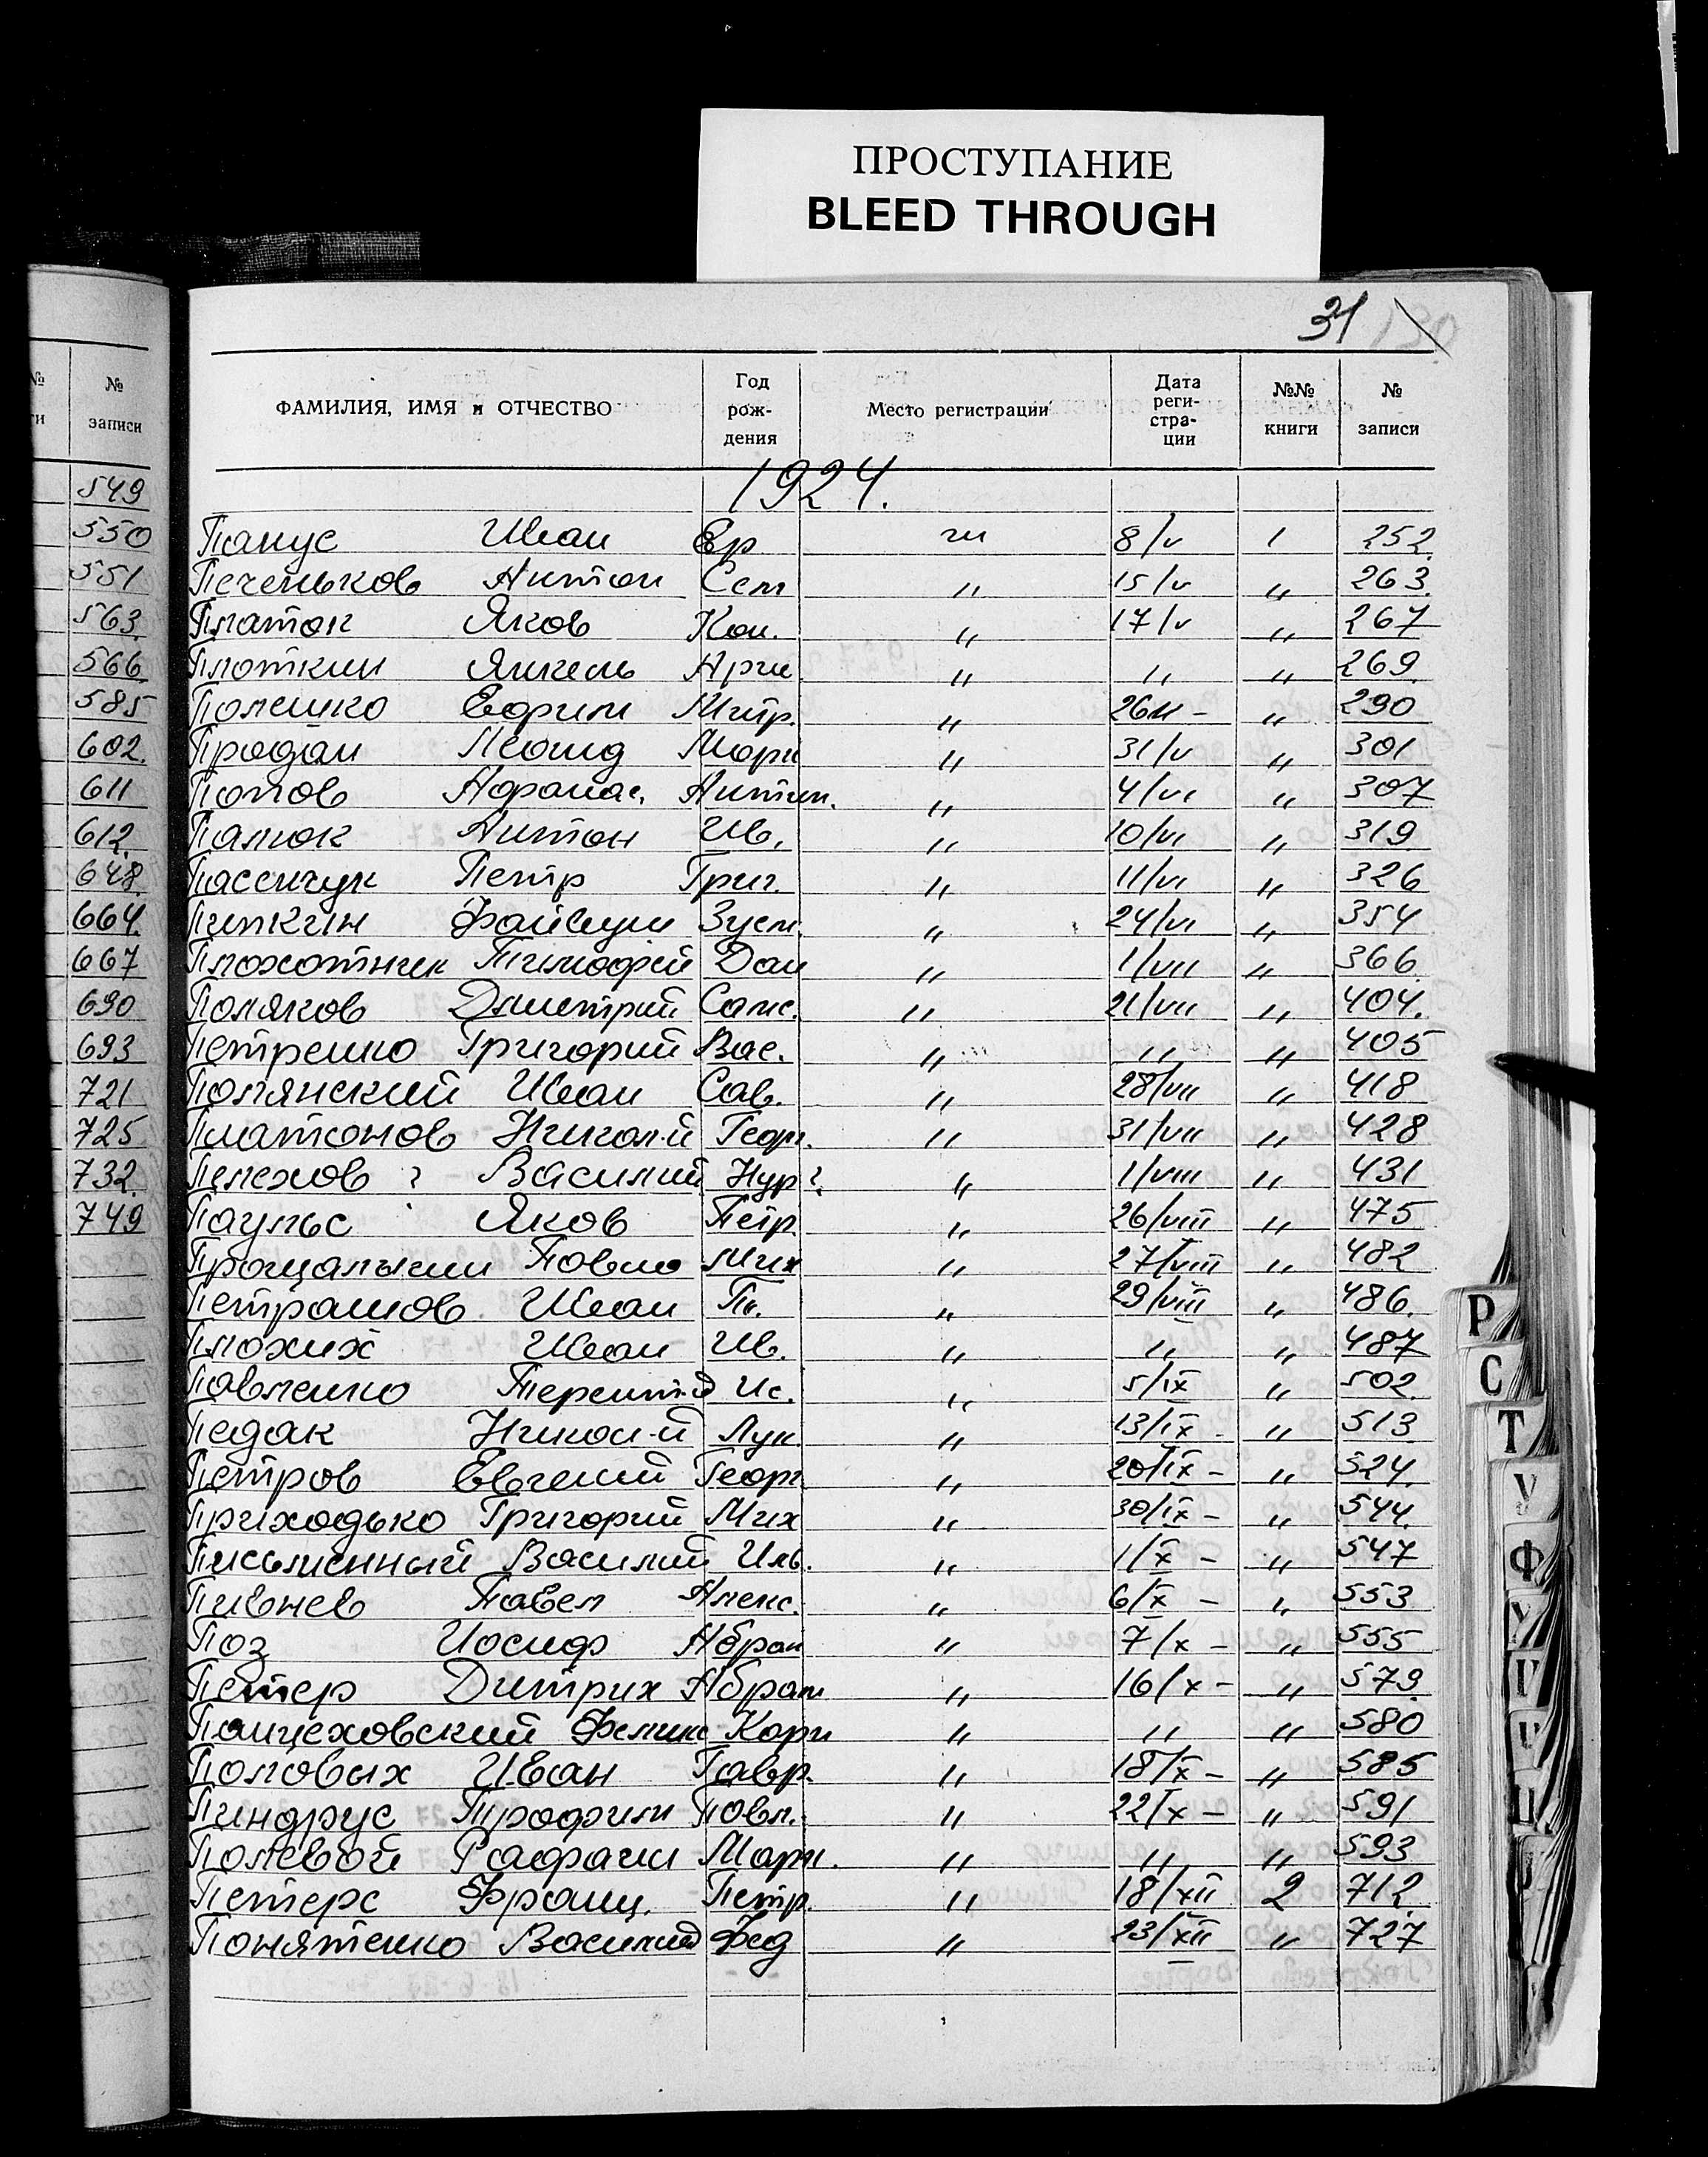 ПРОСТУПАНИЕ
BLEED THROUGH
31
№ записи
ФАМИЛИЯ, ИМЯ и ОТЧЕСТВО Год рож-дения Место регистрации Дата реги-стра-ции №№ книги № записи
549
550
551
563
566
585
602
611
612
648
664
667
690
693
721
725
732
749
1924.
Панус Иван Ер ги 8/v 1 252
Печеньков Антон Сем " 15/v " 263
Платок Яков Кон. " 17/v " 267
Плоткин Янкель " " " 269
Полешко Ефрим Митр. " " 290
Продан Леонид Марк " 31/v " 301
Попов Афанас. Антин. " 4/vi " 307
Палюк Антон Ив. " 10/vi " 319
Пасенчук Петр Григ. " 11/vi " 326
Пипкин Зусм. " 24/vi " 354
Плохотник Тимофей Дан " 1/vii " 366
Поляков Дмитрий Самс. " 21/vii " 404.
Петренко Григорий Вас. " " " 405
Полянский Иван Сав. " 28/vii " 418
Платонов Никол-й Георг. " 31/vii " 428
Пелехов ? Василий Нур?. " 1/viii " 431
Паульс Яков Петр. " 26/viii " 475
Прощалыкин Павло Мих " 27/viii " 482
Петрашов Иван Пл. " 29/viii " 486.
Плохих Иван Ив. " " " 487
Павленко Терентий Ис. " 5/ix " 502
Педак Никол-й Лук. " 13/ix " 513
Петров Евгений Георг. " 20/ix - " 524.
Приходько Григорий Мих " 30/ix - " 544.
Письменный Василий Иль. " 1/x - " 547
Пивнев Павел Алекс. " 6/x - " 553
Поз Иосиф Абрам " 7/x - " 555
Петер Дитрих Абрам " 16/x - " 579.
Панцеховский Феликс Карл " " " 580
Половых Иван Гавр. " 18/x - " 585
Пиндрус Трофим Павл. " 22/x - " 591
Полевой Рафаил Марк. " " " 593
Петерс Франц. Петр. " 18/xii 2 712
Понятенко Василий Фед " 23/xii " 727
Р
С
Т
У
Ф